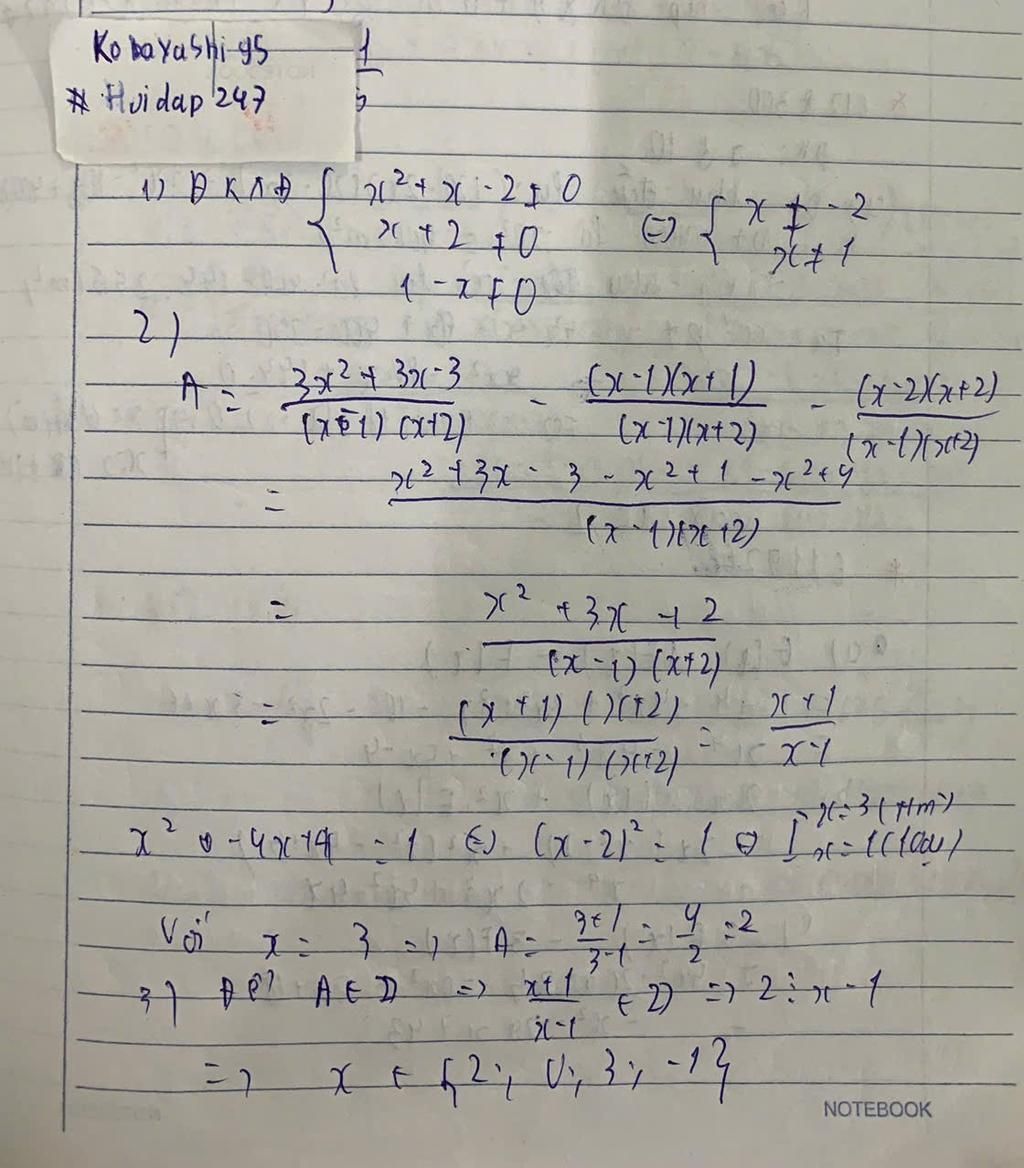 Kobayashi 95
# Hoidap 247
1) ĐKXĐ { x² + x - 2 ≠ 0 ; x + 2 ≠ 0 ; 1 - x ≠ 0 (=) { x ≠ -2 ; x ≠ 1
2)
A = (3x² + 3x - 3)/((x-1)(x+2)) - ((x-1)(x+1))/((x-1)(x+2)) - ((x-2)(x+2))/((x-1)(x+2))
= (x² + 3x - 3 - x² + 1 - x² + 4)/((x-1)(x+2))
= (x² + 3x + 2)/((x-1)(x+2))
= ((x+1)(x+2))/((x-1)(x+2)) = (x+1)/(x-1)
x² - 4x + 4 = 1 (=) (x-2)² = 1 (=) [ x = 3 (t/m) ; x = 1 (loại)
Với x = 3 => A = (3+1)/(3-1) = 4/2 = 2
3) Để A ∈ Z => (x+1)/(x-1) ∈ Z => 2 ⋮ x - 1
=> x ∈ {2; 0; 3; -1}
NOTEBOOK